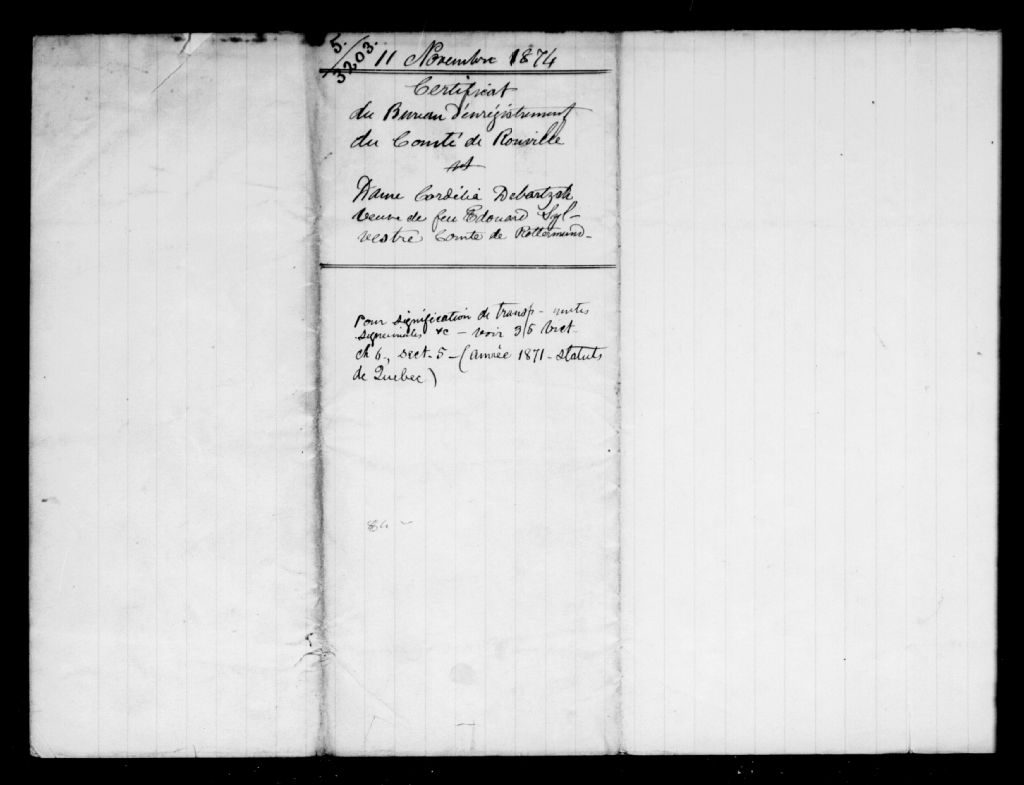 5.
3203.
11 Novembre 1874
Certificat
du Bureau d'enrégistrement
du Comté de Rouville
Dame Cordélia Debartzch
veuve de feu Edouard Syl-
vestre Comte de Rottermund -
Pour signification de transp - 
&c - voir 35 Vict.
ch 6., sect. 5 - (année 1871 - statuts
de Quebec)